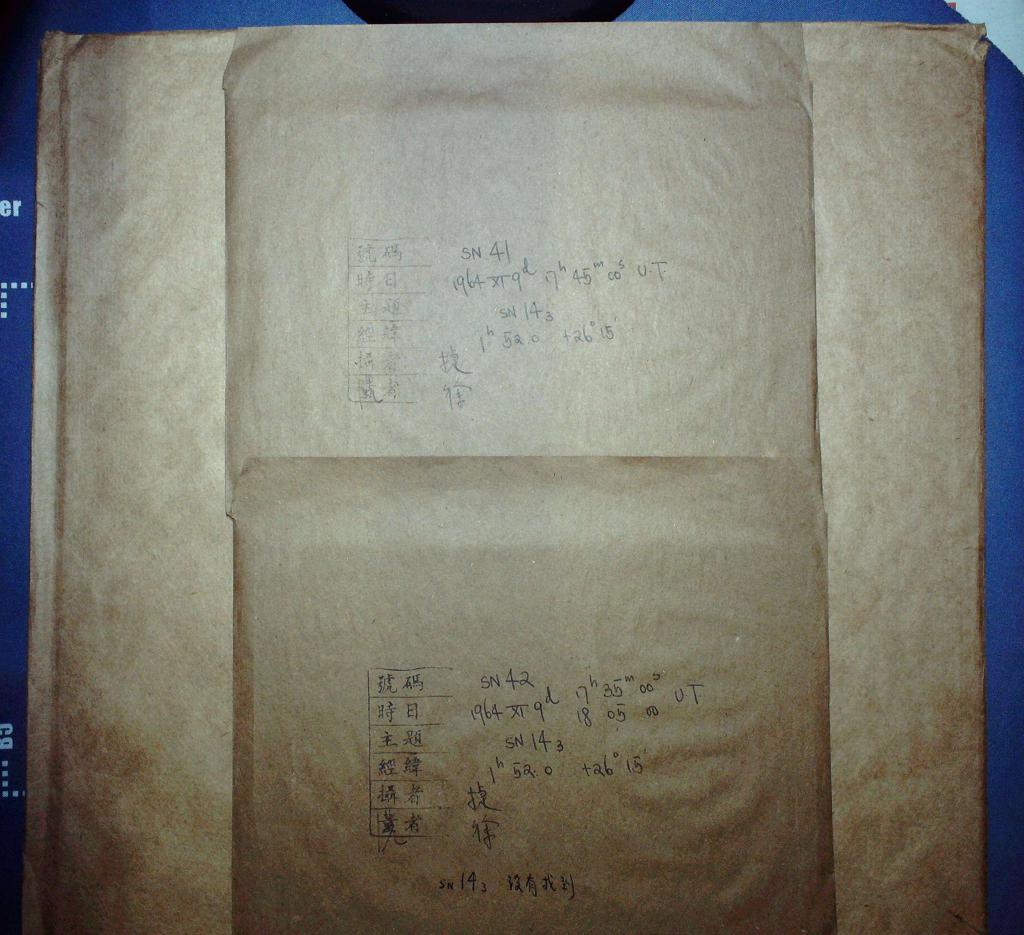 er
號碼 SN 41
時日 1964 XI 9ᵈ 17ʰ 45ᵐ 00ˢ U.T
主題 SN 14₃
經緯 1ʰ 52.0 +26° 15'
攝者 捷
者 徐
號碼 SN 42
時日 1964 XI 9ᵈ 17ʰ 35ᵐ 00ˢ U T
18 05 00
主題 SN 14₃
經緯 1ʰ 52.0 +26° 15'
攝者 捷
者 徐
SN 14₃ 没有找到